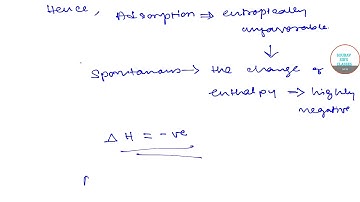 Hence, Adsorption ⇒ entropically
unfavorable
↓
Spontaneous → the change of
enthalpy → highly
negative
Δ H = -ve